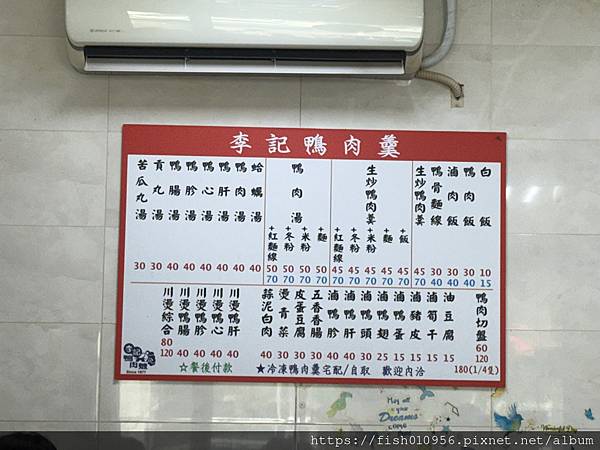 李記鴨肉羹
白飯 10 15
鴨肉飯 30 40
滷肉飯 30 40
鴨骨麵線 30 40
生炒鴨肉羹 45 70
生炒鴨肉羹
+飯 45 70
+麵 45 70
+米粉 45 70
+冬粉 45 70
+紅麵線 45 70
鴨肉湯
+麵 50 70
+米粉 50 70
+冬粉 50 70
+紅麵線 50 70
蛤蠣湯 40
鴨肉湯 40
鴨肝湯 40
鴨心湯 40
鴨胗湯 40
鴨腸湯 40
貢丸湯 30
苦瓜丸湯 30
鴨肉切盤 60 120 180(1/4隻)
油豆腐 15
滷筍干 15
滷豬皮 15
滷鴨蛋 15
滷鴨翅 25
滷鴨頭 30
滷鴨肝 30
滷鴨胗 40
五香香腸 30
皮蛋豆腐 30
燙青菜 30
蒜泥白肉 40
川燙鴨肝 40
川燙鴨心 40
川燙鴨胗 40
川燙鴨腸 40
川燙綜合 80 120
Since 1977
☆餐後付款
★冷凍鴨肉羹宅配/自取 歡迎內洽
May all
your
Dreams
come
Wonderful Day
https://fish010956.pixnet.net/album